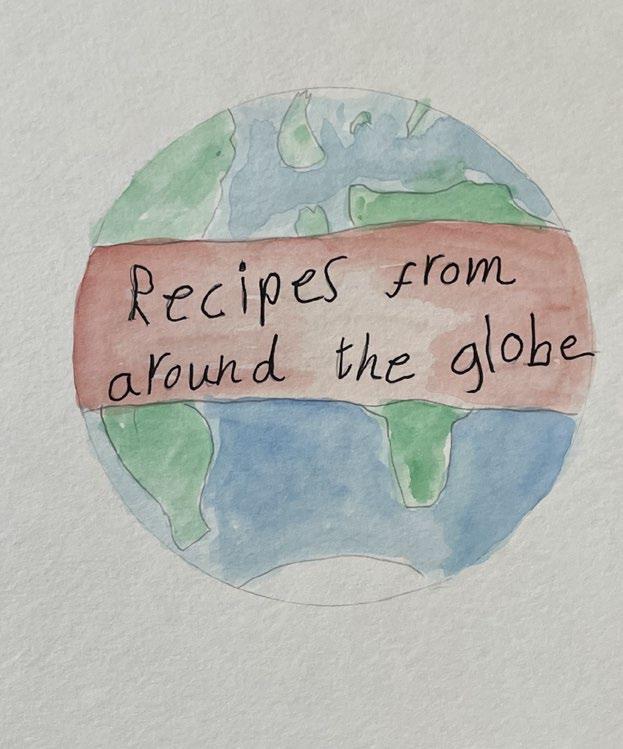 Recipes from
around the globe